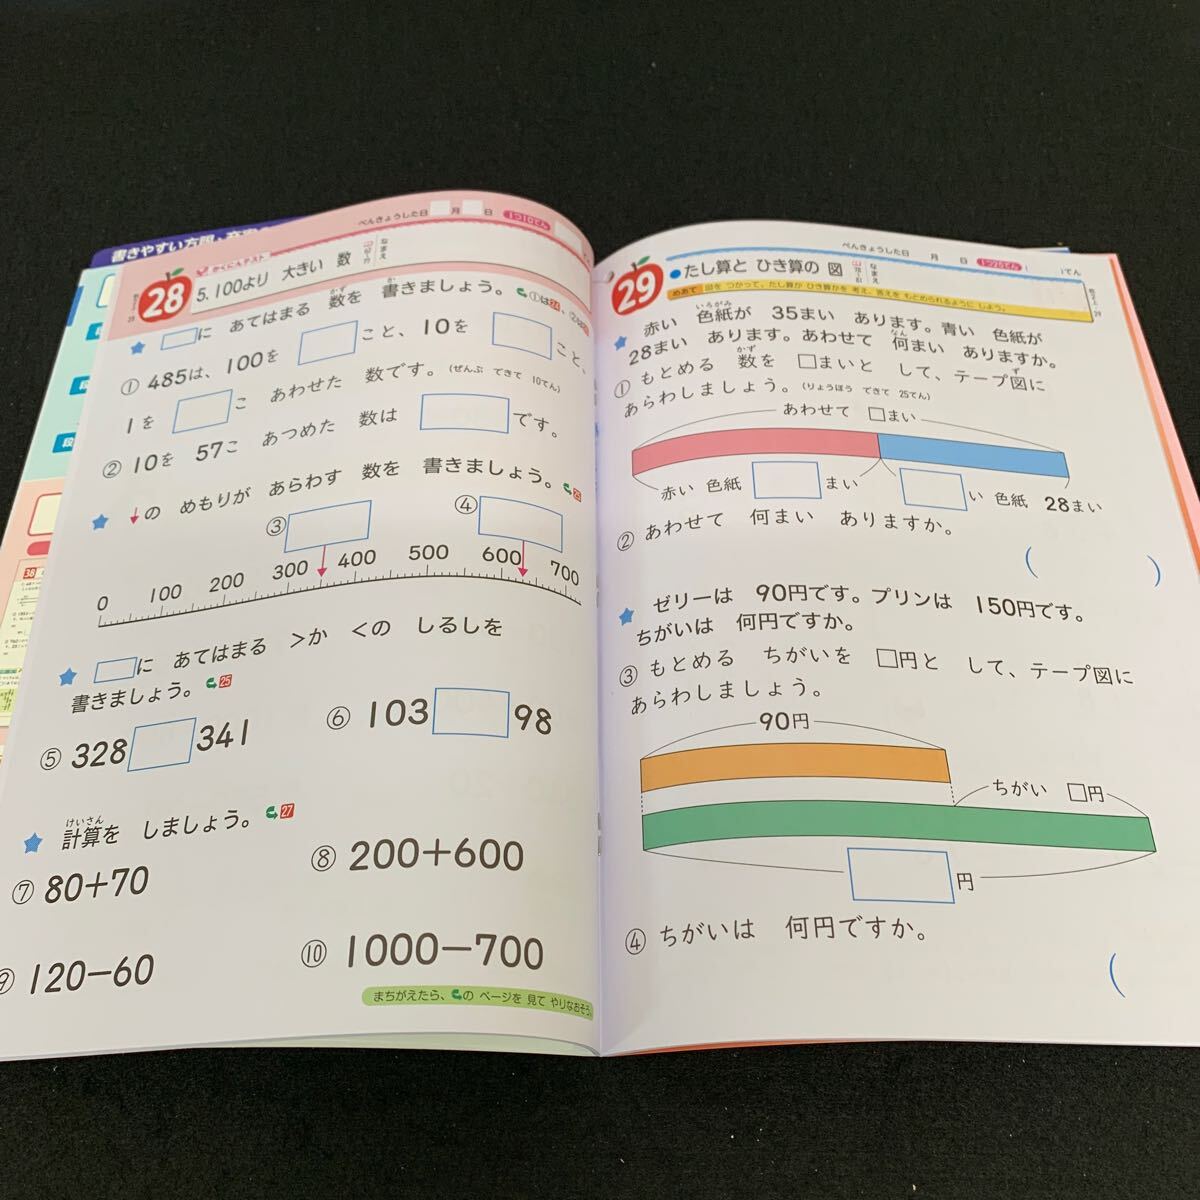 書きやすい方眼・充実
べんきょうした日 月 日 1つ10てん
28 かくにんテスト
5.100より 大きい 数
なまえ
□に あてはまる 数を 書きましょう。
かず か
①は24、②は
① 485は、100を □こと、10を □こと、
1を □こ あわせた 数です。(ぜんぶ できて 10てん)
② 10を 57こ あつめた 数は □です。
↓の めもりが あらわす 数を 書きましょう。25
③ ④
0 100 200 300 400 500 600 700
□に あてはまる >か <の しるしを
書きましょう。25
⑤ 328 □ 341
⑥ 103 □ 98
けいさん
計算を しましょう。27
⑦ 80+70
⑧ 200+600
⑨ 120-60
⑩ 1000-700
まちがえたら、の ページを 見て やりなおそう。
べんきょうした日 月 日 1つ25てん てん
29 ●たし算と ひき算の 図
なまえ
めあて 図を つかって、たし算か ひき算かを 考え、答えを もとめられるように しよう。
いろがみ
赤い 色紙が 35まい あります。青い 色紙が
なん
28まい あります。あわせて 何まい ありますか。
かず ず
① もとめる 数を □まいと して、テープ図に
あらわしましょう。(りょうほう できて 25てん)
あわせて □まい
赤い 色紙 □まい □い 色紙 28まい
② あわせて 何まい ありますか。
( )
ゼリーは 90円です。プリンは 150円です。
ちがいは 何円ですか。
③ もとめる ちがいを □円と して、テープ図に
あらわしましょう。
90円
ちがい □円
□円
④ ちがいは 何円ですか。
(